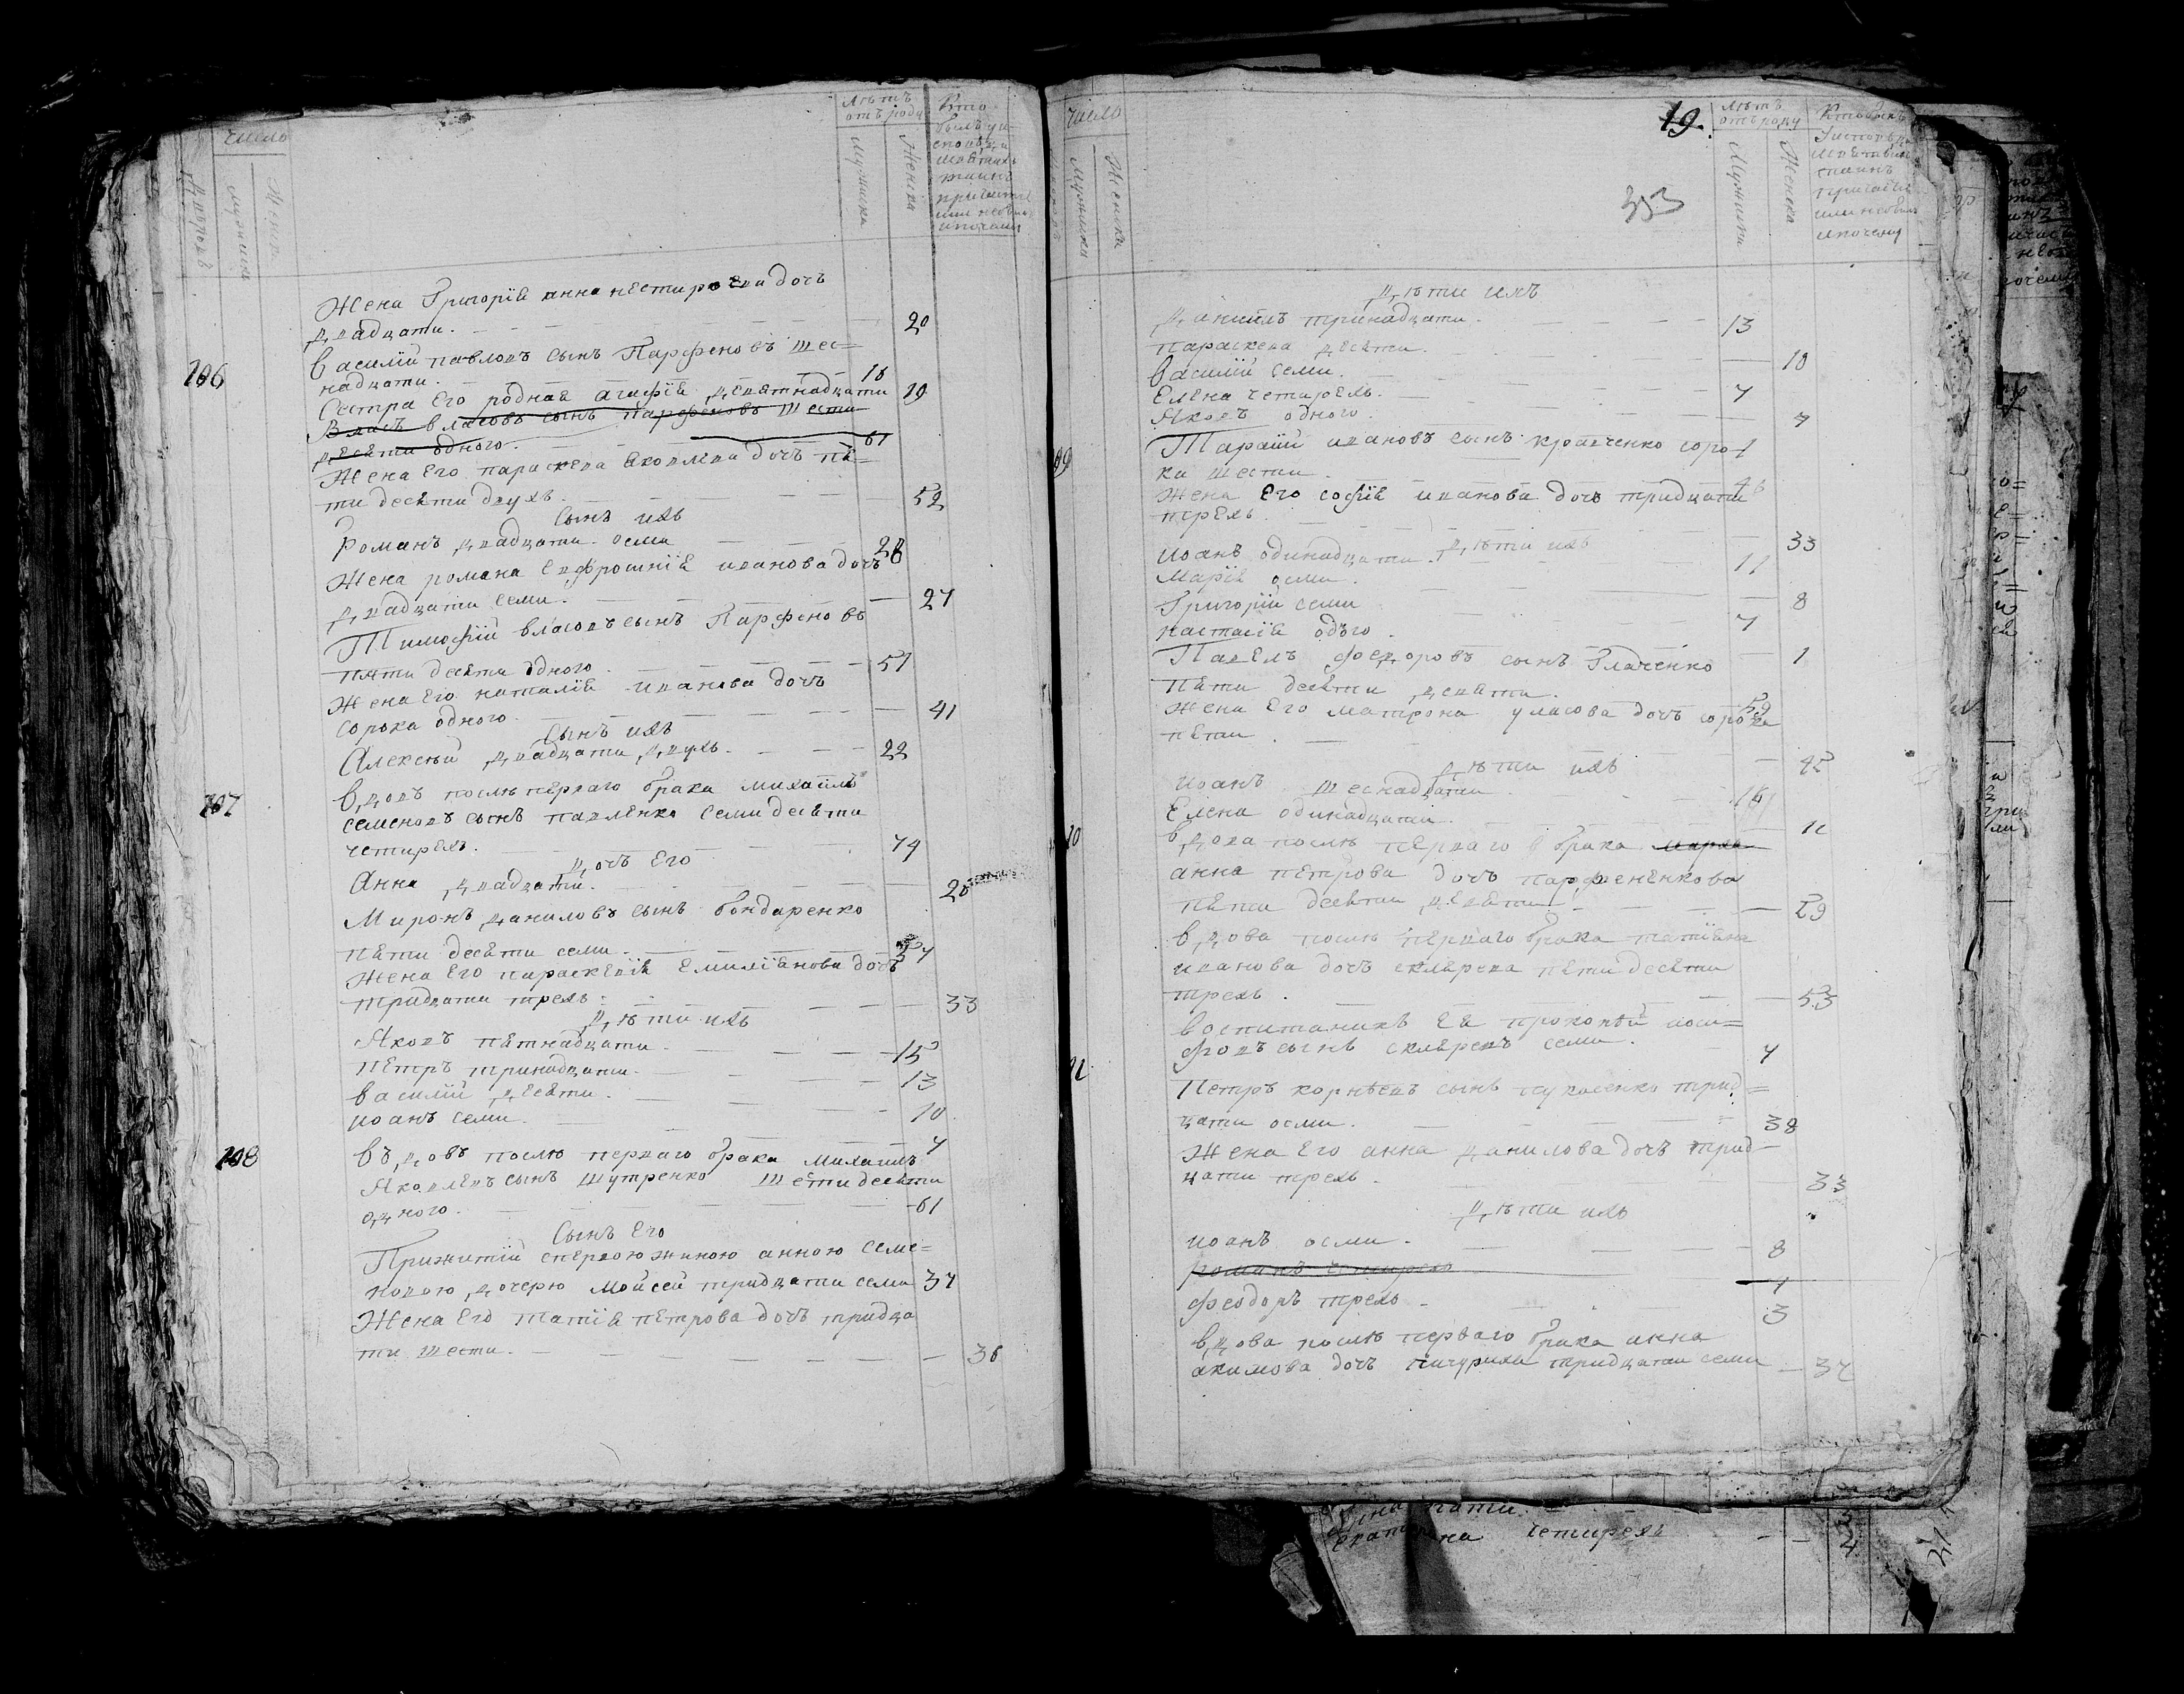 число
мужеска
Женск
лѣтъ
отъ роду
Мужеска
Женска
Кто
былъ у и
Жена Григоріа анна нестирова дочъ
двадцати. 20
106 Василій павловъ сынъ Парфеновъ шес=
надцати. 16
Сестра Его роднаа агафіа деватнадцати 19
Власъ власовъ сынъ парфеновъ шести
десати одного. 61
Жена Его параскева Яковлева дочъ па=
ти десати двухъ. 52
Сынъ ихъ
Романъ двадцати осми 28
Жена романа Евфросиніа иванова дочъ
двадцати семи. 27
Тимофій власовъ сынъ Парфеновъ
пяти десати одного. 51
Жена Его наталіа иванова дочъ
сорока одного. 41
Сынъ ихъ
Алексѣй двадцати двухъ. 22
107 Вдовъ послѣ перваго брака михаилъ
семеновъ сынъ павленко семи десати
четирехъ. 74
дочъ Его
Анна двадцати. 20
Миронъ даниловъ сынъ бондаренко
пати десати семи. 57
Жена Его параскевіа Емиліанова дочъ
тридцати трехъ. 33
дѣти ихъ
Яковъ патнадцати. 15
Петръ тринадцати. 13
василій десати. 10
иоанъ семи. 7
108 Въдовъ послѣ перваго брака михаилъ
Яковлевъ сынъ Шутренко шести десати
одного. 61
Сынъ Его
Прижитій сперъвою жиною анною семе=
новою дочерю Мойсей тридцати семи 37
Жена Его татіа петрова дочъ тридца
ти шести. 36
число
Мужеска
Женска
19.
353
лѣтъ
отъ роду
Мужеска
Женска
дѣти ихъ
Даниилъ тринадцати. 13
Параскева десати. 10
василій семи. 7
Елена четирехъ. 4
Яковъ одного. 1
109 Тарасій ивановъ сынъ кравченко соро=
ка шести. 46
Жена Его софіа иванова дочъ тридцати
трехъ. 33
дѣти ихъ
иоанъ одинадцати. 11
Маріа осми. 8
Григорій семи 7
настасіа одъго. 1
Павелъ федоровъ сынъ Глаченко
пати десати девати. 59
Жена Его матрона уласова дочъ сорока
пати. 45
дѣти ихъ
иоанъ шеснадцати. 16
Елена одинадцати. 11
10 вдова послѣ перваго брака марха
анна петрова дочъ парфененкова
пати десати девати. 59
вдова послѣ перваго брака татіана
иванова дочъ скларева пати десати
трехъ. 53
воспитаникъ Еа прокопій иоси=
фовъ сынъ скларевъ семи. 7
Петръ корнѣевъ сынъ пукасенко трид=
цати осми. 38
Жена Его анна данилова дочъ трид=
цати трехъ. 33
дѣти ихъ
иоанъ осми. 8
романъ четирехъ 4
Феодоръ трехъ. 3
вдова послѣ перваго брака анна
акимова дочъ пичуриха тридцати семи 37
четирехъ 4